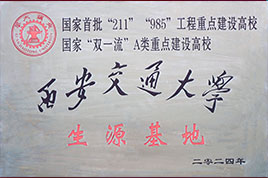 国家首批“211”“985”工程重点建设高校
国家“双一流”A类重点建设高校
西安交通大学
生源基地
二零二四年